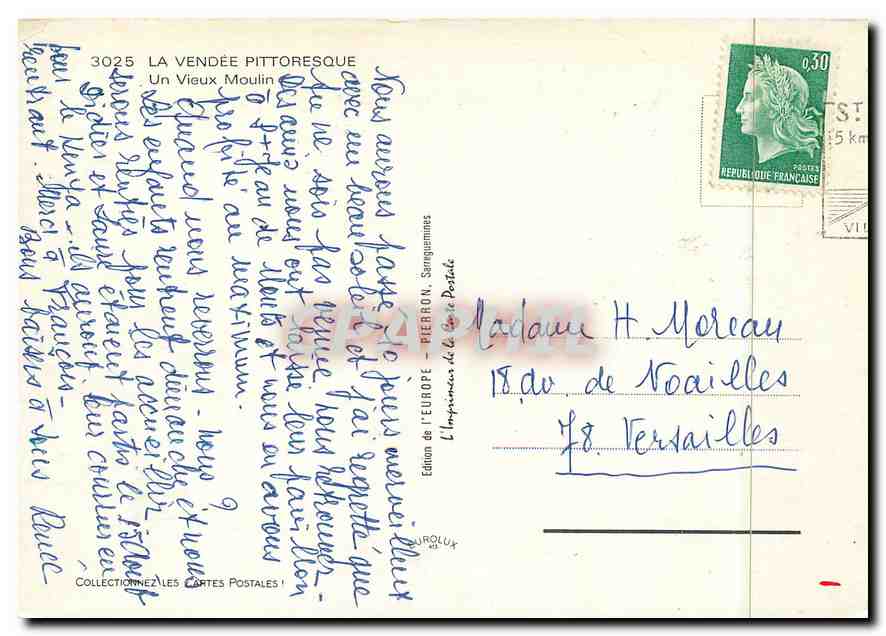 3025 LA VENDÉE PITTORESQUE
Un Vieux Moulin
Nous aurons passé 10 jours merveilleux
avec un beau soleil et j'ai regretté que
tu ne sois pas venue nous retrouver -
Des amis nous ont laissé leur pavillon
à St Jean de Monts et nous en avons
profité au maximum.
Quand nous reverrons-nous ?
Les enfants rentrent dimanche et nous
serons rentrés pour les accueillir
Didier et Laure étaient partis le 15 Août
pour le Kenya - ils auront leur courrier en
rentrant. Merci à François -
Bons baisers à tous Renée
COLLECTIONNEZ LES CARTES POSTALES !
Edition de l'EUROPE - PIERRON, Sarreguemines
L'Imprimeur de la Carte Postale
EUROLUX
CPAPHIL
0,30
POSTES
REPUBLIQUE FRANÇAISE
ST
5 km
VIL
Madame H. Moreau
18 av. de Noailles
78. Versailles